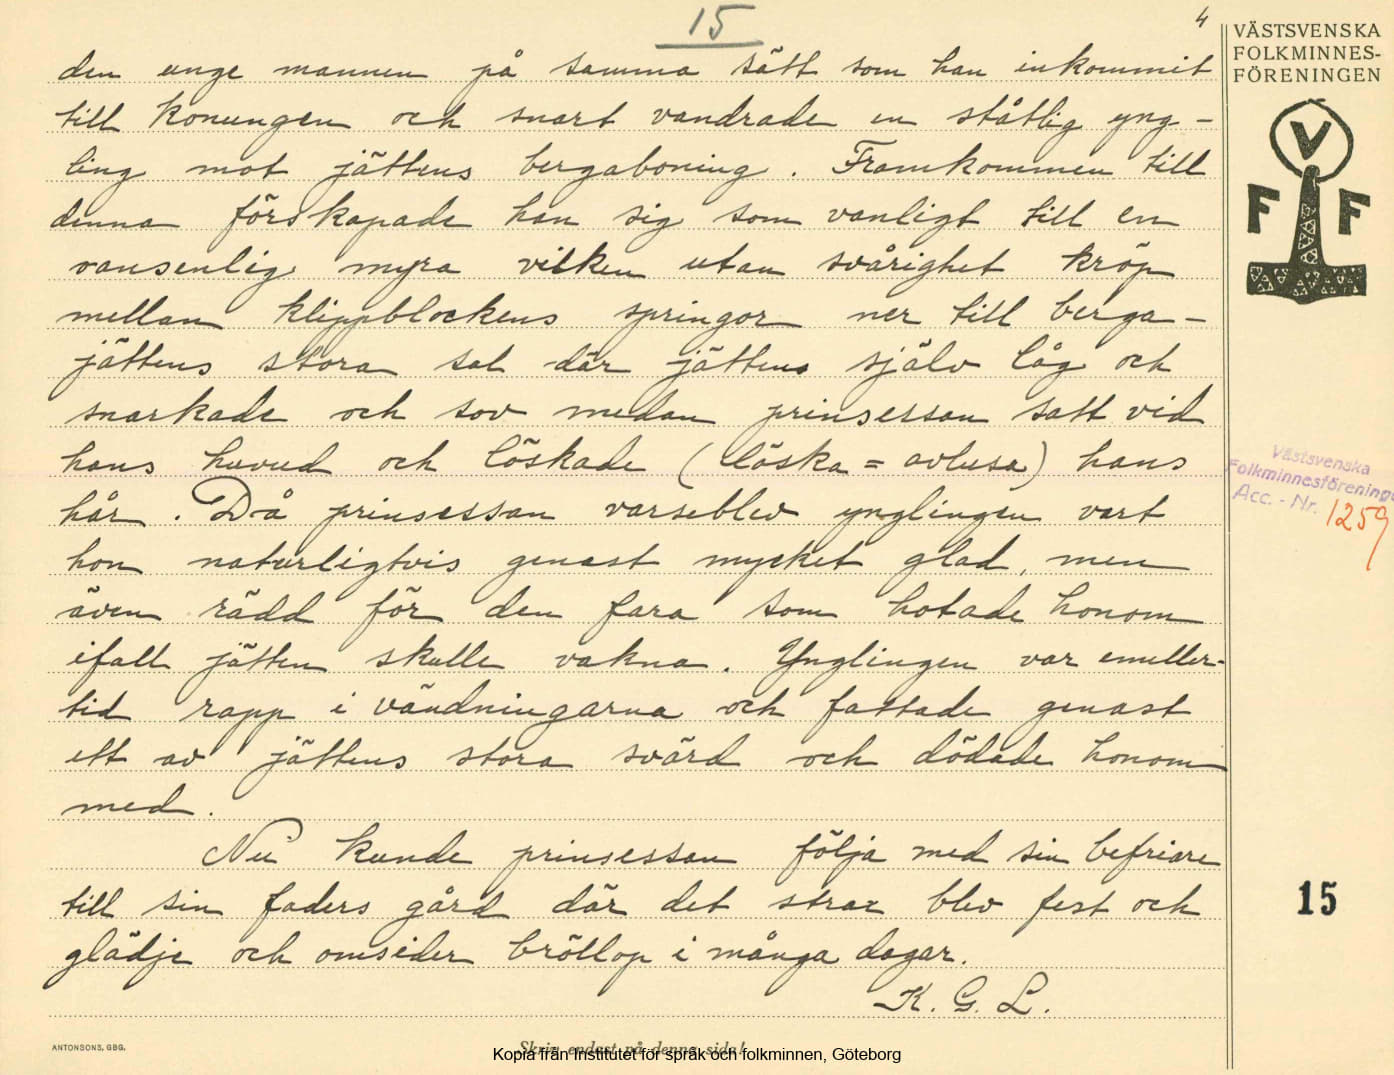 15
4
den unge mannen på samma sätt som han inkommit
till konungen och snart vandrade en ståtlig yng-
ling mot jättens bergaboning. Framkommen till
denna förskapade han sig som vanligt till en
oansenlig myra vilken utan svårighet kröp
mellan klippblockens springor ner till berga-
jättens stora sal där jättens själv låg och
snarkade och sov medan prinsessan satt vid
hans huvud och löskade (löska = avlusa) hans
hår. Då prinsessan varseblev ynglingen vart
hon naturligtvis genast mycket glad, men
även rädd för den fara som hotade honom
ifall jätten skulle vakna. Ynglingen var emeller-
tid rapp i vändningarna och fattade genast
ett av jättens stora svärd och dödade honom
med.
Nu kunde prinsessan följa med sin befriare
till sin faders gård där det strax blev fest och
glädje och omsider bröllop i många dagar.
K. G. L.
VÄSTSVENSKA
FOLKMINNES-
FÖRENINGEN
V
F F
Västsvenska
Folkminnesförening
Acc. - Nr. 1259
15
ANTONSONS, GBG.
Skriv endast på denna sida!
Kopia från Institutet för språk och folkminnen, Göteborg